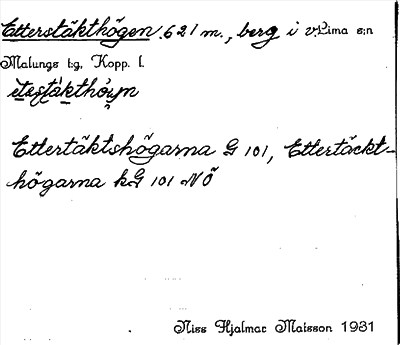 Etterstäkthögen. 621 m., berg i v. Lima s:n
Malungs t:g, Kopp. l.
Ettertäktshögarna G 101, Ettertäckt-
högarna kG 101 NÖ
Niss Hjalmar Matsson 1931